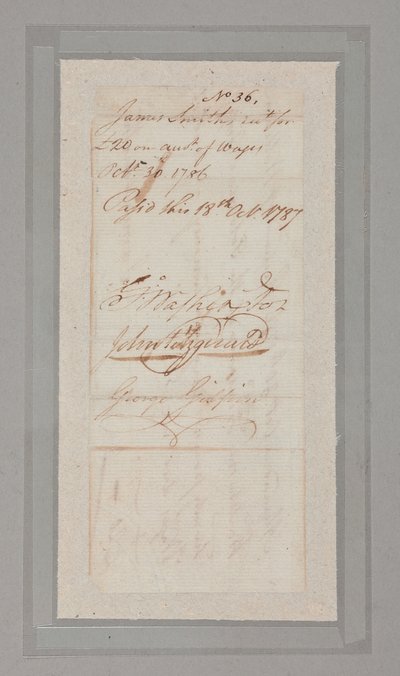 No 36,
James Smith's rect for
£20 on acct of Wages
Octr 30 1786
Passd this 18th Oct. 1787
Go Washington
John Fitzgerald
George Gilpin